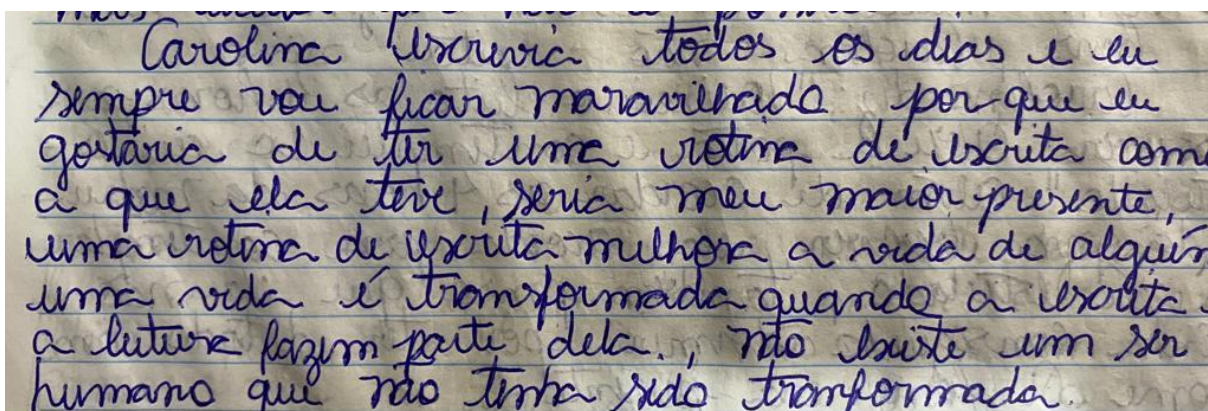 Carolina escrevia todos os dias e eu
sempre vou ficar maravilhado por que eu
gostaria de ter uma rotina de escrita com
a que ela teve, seria meu maior presente,
uma rotina de escrita melhora a vida de alguém
uma vida é transformada quando a escrita
a leitura fazem parte dela., não existe um ser
humano que não tenha sido tranformada.